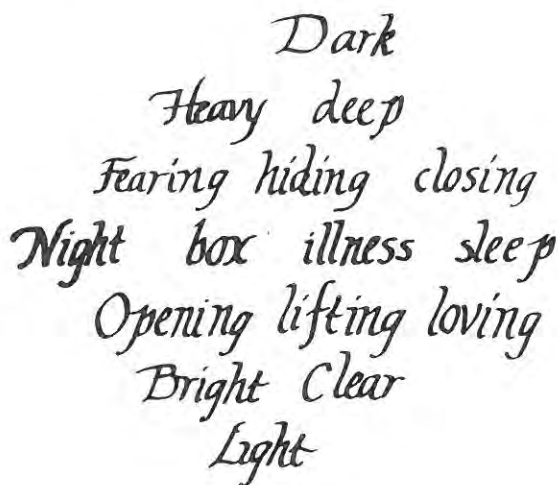 Dark
Heavy deep
Fearing hiding closing
Night box illness sleep
Opening lifting loving
Bright Clear
Light